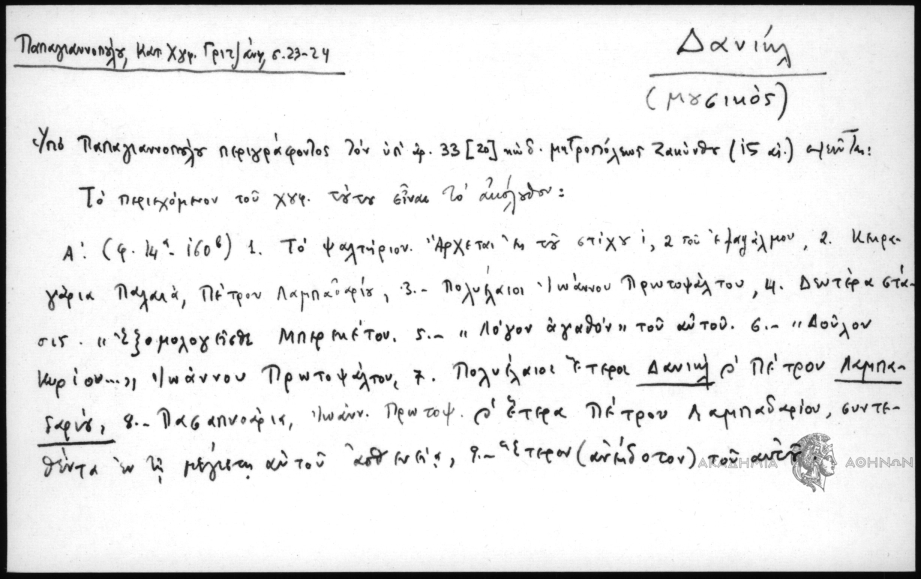 Παπαγιαννοπούλου, Κατ. Χγφ. Γριτζάνη, σ. 23-24
Δανιὴλ
(μουσικὸς)
Ὑπὸ Παπαγιαννοπούλου περιγράφοντος τὸν ὑπ' ἀρ. 33 [20] κώδ. μητροπόλεως Ζακύνθου (ΙΕ αἰ.)
Τὸ περιεχόμενον τοῦ χγφ. τούτου εἶναι τὸ ἀκόλουθον:
Α'. (φ. 14α - 160β) 1. Τὸ ψαλτήριον. Ἄρχεται ἐκ τοῦ στίχου 2 τοῦ ψαλμου, 2. Κεκρα-
γάρια Παλαιά, Πέτρου Λαμπαδαρίου, 3.- Πολυέλαιοι Ἰωάννου Πρωτοψάλτου, 4. Δευτέρα στά-
σις. "Ἐξομολογεῖσθε Μπερεκέτου. 5.- "Λόγον ἀγαθόν" τοῦ αὐτοῦ. 6.- "Δοῦλοι
Κυρίου...", Ἰωάννου Πρωτοψάλτου, 7. Πολυέλαιοι ἕτεροι Δανιὴλ & Πέτρου Λαμπα-
δαρίου, 8.- Πασαπνοάρια, Ἰωάνν. Πρωτοψ. & ἕτερα Πέτρου Λαμπαδαρίου, συντε-
θέντα ἐν τῇ μεγίστῃ αὐτοῦ ἀσθενείᾳ, 9.- ἕτερον (ἀνέκδοτον) τοῦ αὐτοῦ
ΑΚΑΔΗΜΙΑ ΑΘΗΝΩΝ